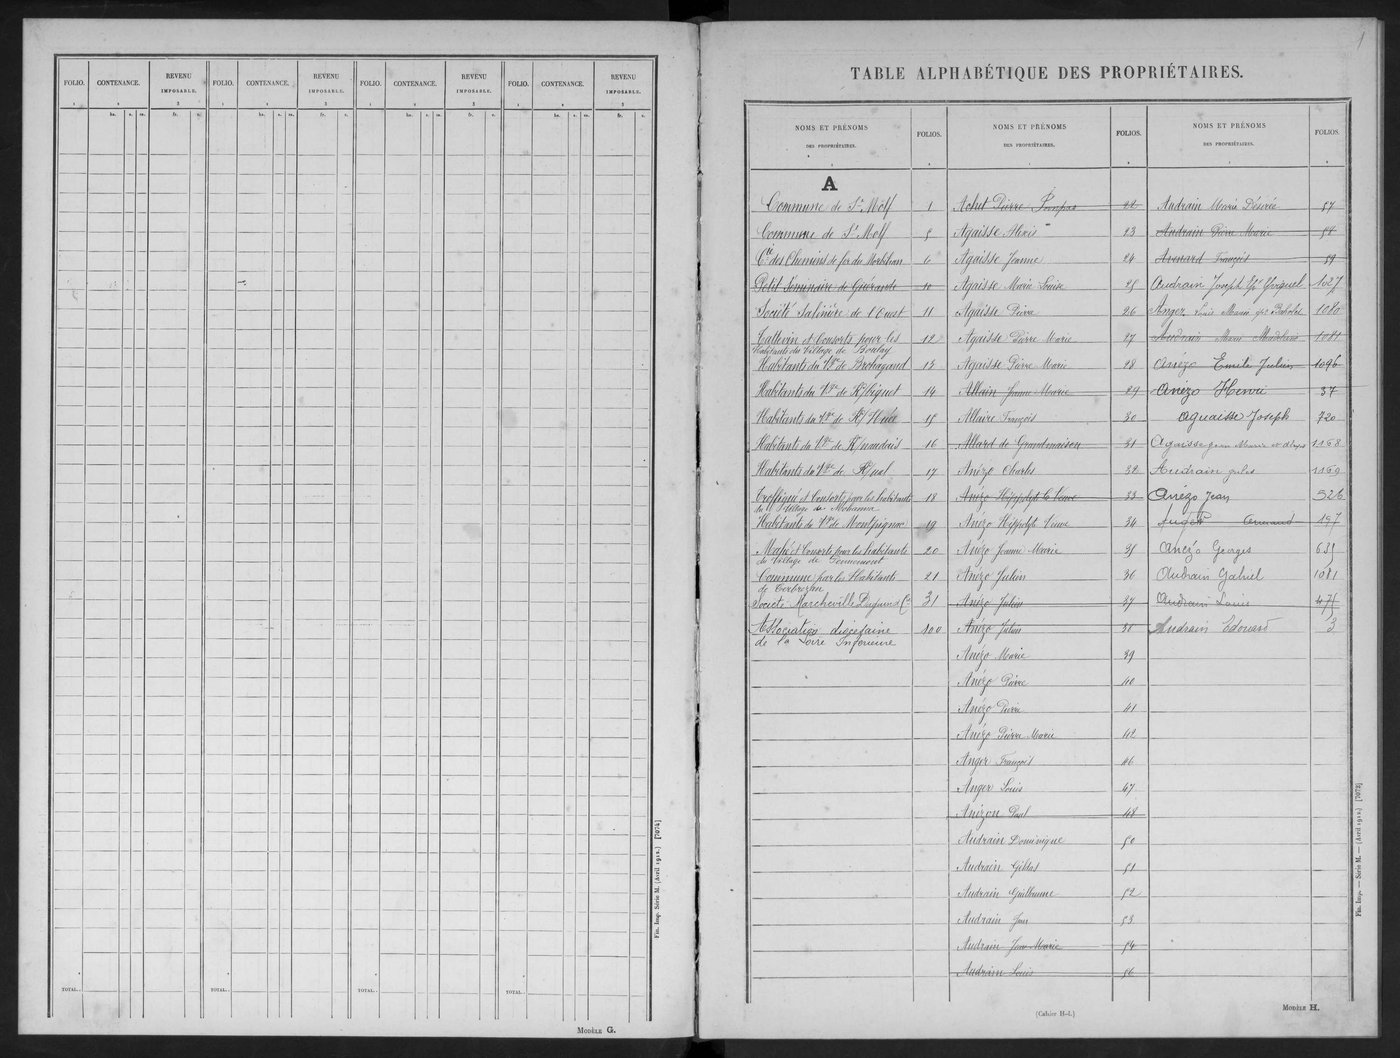 FOLIO. CONTENANCE. REVENU IMPOSABLE. FOLIO. CONTENANCE. REVENU IMPOSABLE. FOLIO. CONTENANCE. REVENU IMPOSABLE. FOLIO. CONTENANCE. REVENU IMPOSABLE.
1 2 3 1 2 3 1 2 3 1 2 3
ha. a. ca. fr. c. ha. a. ca. fr. c. ha. a. ca. fr. c. ha. a. ca. fr. c.
TOTAL. TOTAL. TOTAL. TOTAL.
Fin. Imp. Série M. (Avril 1912.) [7074]
MODÈLE G.
1
TABLE ALPHABÉTIQUE DES PROPRIÉTAIRES.
NOMS ET PRÉNOMS
DES PROPRIÉTAIRES.
FOLIOS.
A
Commune de St Molf 1
Commune de St Molf 5
Cie des Chemins de fer du Morbihan 6
Petit Séminaire de Guérande 10
Société Salinière de l'Ouest 11
Tattevin et Consorts pour les 12
habitants du village de Boulay
Habitants du Vge de Brohagand 13
Habitants du Vge de K/biguet 14
Habitants du Vge de K/ 15
Habitants du Vge de K/ 16
Habitants du Vge de K/ 17
et Consorts pour les habitants 18
du Village de
Habitants de Vge de Montpignac 19
Mahé et Consorts pour les habitants 20
du Village de
Commune par les Habitants 21
de
Société Marcheville Daguin & Cie 31
Association diocésaine 100
de la Loire Inférieure
NOMS ET PRÉNOMS
DES PROPRIÉTAIRES.
FOLIOS.
Achet Pierre 22
Agaisse Alexis 23
Agaisse Jeanne 24
Agaisse Marie Louise 25
Agaisse Pierre 26
Agaisse Pierre Marie 27
Agaisse Pierre Marie 28
Allain Jeanne Marie 29
Allaire François 30
Allard de Grandmaison 31
Anézo Charles 32
Anézo Hippolyte Veuve 33
Anézo Hippolyte Veuve 34
Anézo Jeanne Marie 35
Anézo Julien 36
Anézo Julien 37
Anézo Julien 38
Anézo Marie 39
Anézo Pierre 40
Anézo Pierre 41
Anézo Pierre Marie 42
Anger François 46
Anger Louis 47
Anizon Paul 48
Audrain Dominique 50
Audrain Gildas 51
Audrain Guillaume 52
Audrain Jean 53
Audrain Jean Marie 54
Audrain Louis 56
NOMS ET PRÉNOMS
DES PROPRIÉTAIRES.
FOLIOS.
Audrain Marie Désirée 57
Audrain Pierre Marie 58
Avenard François 59
Audrain Joseph 1027
Anger Louis Marie 1080
Audrain Marie Madeleine 1081
Anézo Emile Julien 1096
Anézo Henri 37
Aguaisse Joseph 720
Agaisse Jean Marie et 1168
Audrain Jules 1169
Anézo Jean 526
Anger Armand 157
Anézo Georges 635
Audrain Gabriel 1081
Audrain Louis 475
Audrain Edouard 3
Fin. Imp. — Série M. — (Avril 1912.) [7075]
(Cahier H-I.)
MODÈLE H.